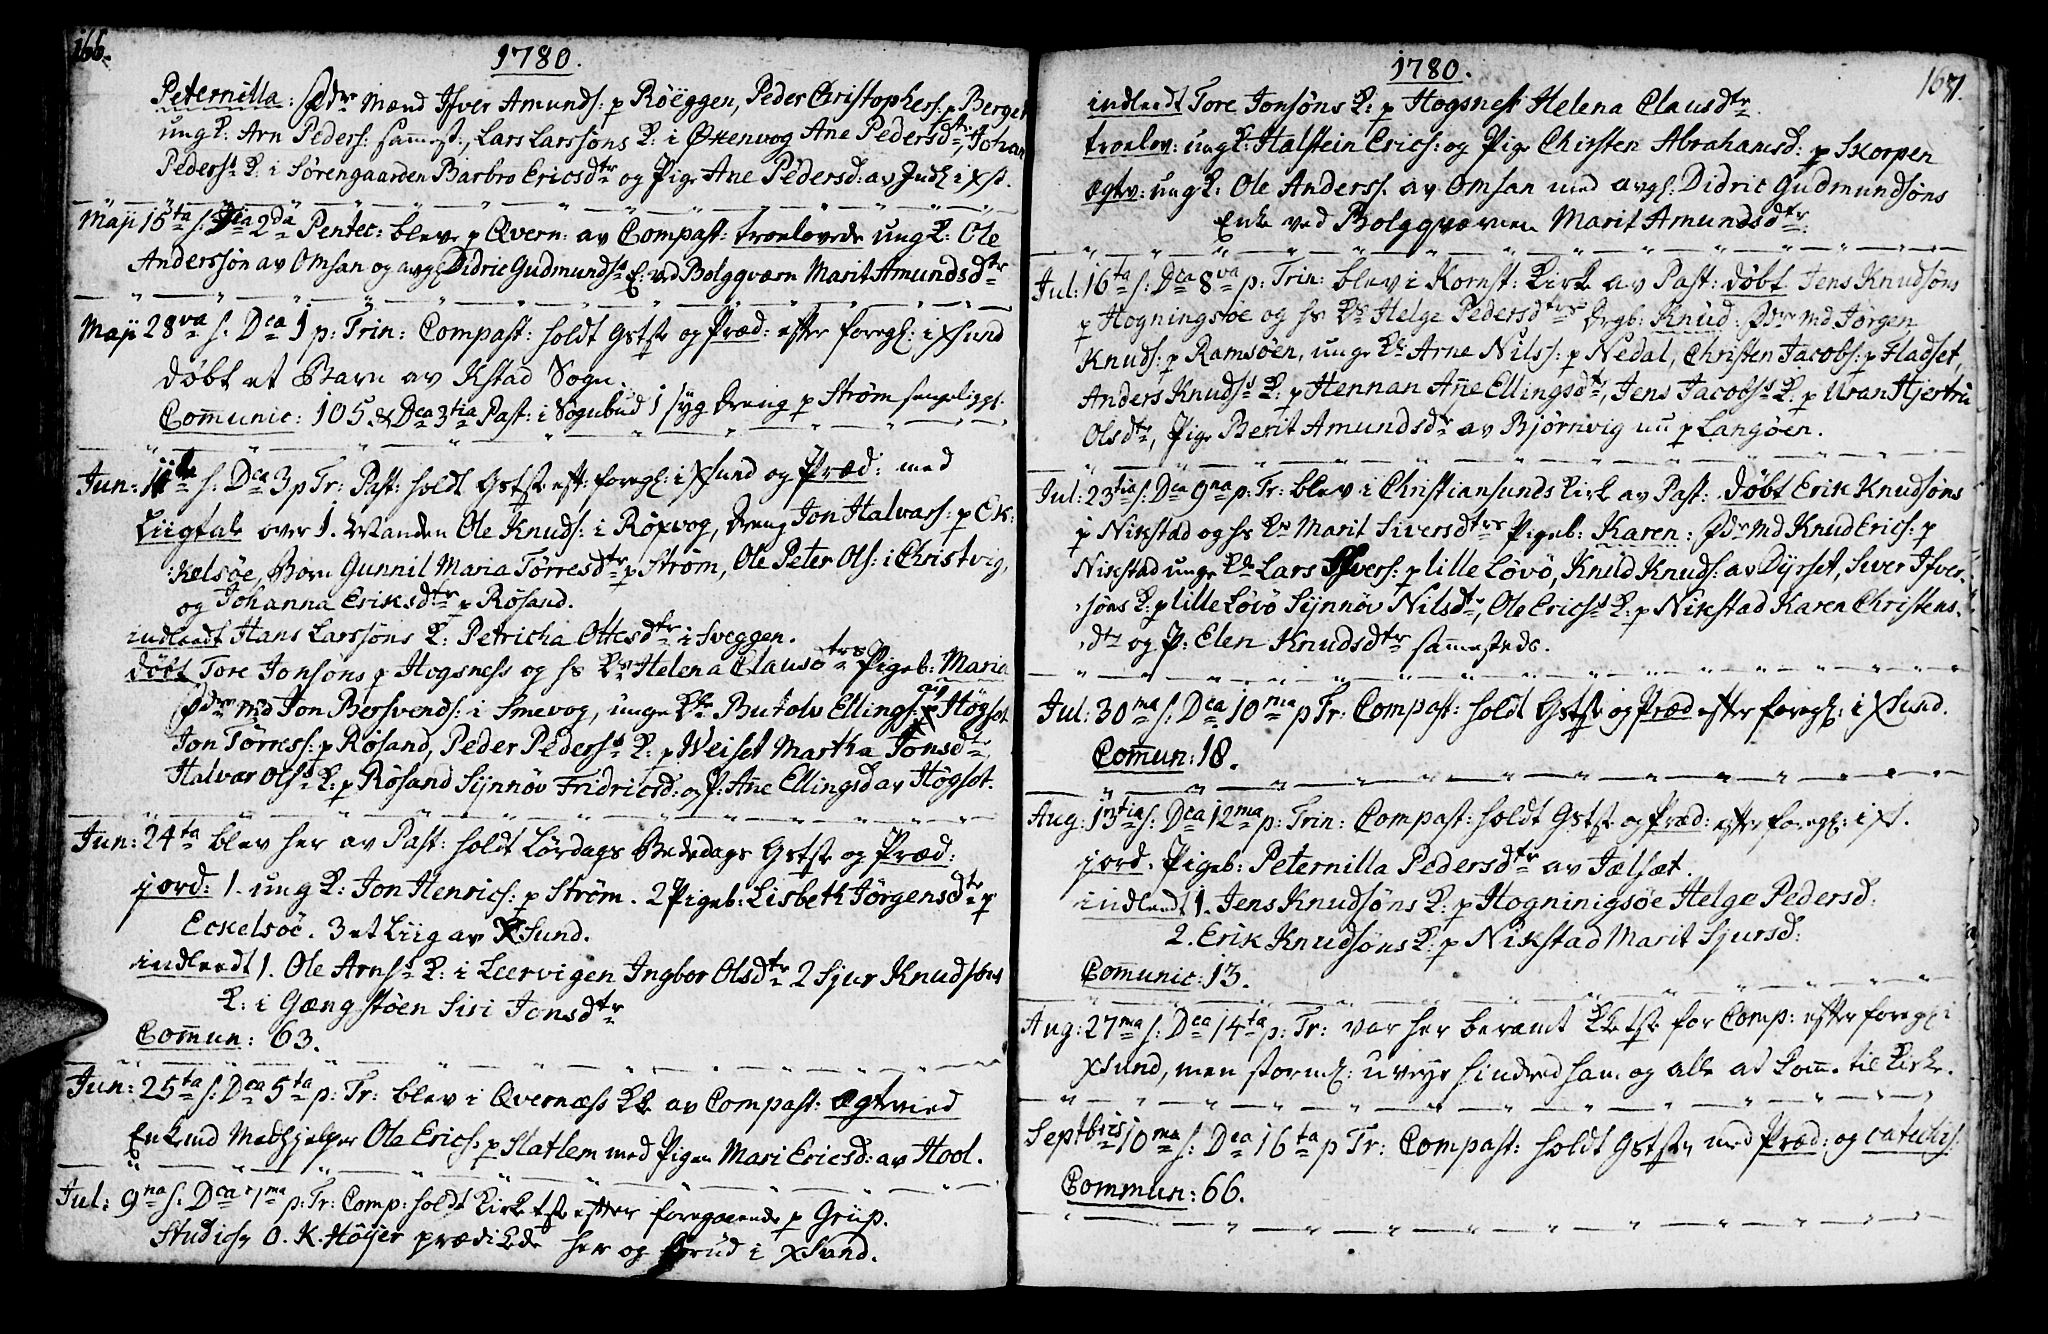 166.
1780.
Peternilla: Fdre Mand Ifver Amunds: p Röeggen, Peder Christophers: p Berget
ungK: Arn Peders: sammest:, Lars Larssøns K: i Øxenvog Ane Pedersdtr, Johan
Pederss K: i Sørengaarden Barbro Ericsdtr og Pige Ane Pedersd: av Indl i Xst.
Maji 15ta s: Dca 2da Pentec: blev p Qvern: av Compast: troelovede ungK: Ole
Anderssøn av Omsan og avgl Didric Gudmunds: E: ved Bolgqværn Marit Amundsdtr
Maji 28va s: Dca 1 p: Trin: Compast: holdt Gstste og Præd: efter foregl: i Xsund
døbt et Barn av Kstad Sogn.
Com̄unic: 105. & Dca 3tia Past: i Sognebud 1 syg Dreng p Strøm sengeliggl.
Jun: 11te s: Dca 3 p Tr: Past: holdt Gstste eft: foregl: i Xsund og Præd: med
Liigtale over 1. Manden Ole Knuds: i Røxvog, Dreng Jon Halvars: p Ek-
kelsøe, Børn Gunnil Maria Torresdtr p Strøm, Ole Peter Ols: i Christvig,
og Johanna Eriksdtr p Røsand.
indleedt Hans Larssøns K: Petricha Ottesdtr i Sveggen.
døbt Tore Jonsøns p Hogsness og hs Ks Helena Clausdtrs Pigeb: Maria
Fdre Md Jon Bersvends: i Smevog, unge Kle Butolv Ellings: av Høgset
Jon Torress: p Røsand, Peder Pederss K: p Weiset Martha Jonsdtr,
Halvar Olss K: p Røsand Synnøv Fridricsd: og P: Ane Ellingsd av Høgset.
Jun: 24ta blev her av Past: holdt Lørdags Bededags Gstste og Præd:
jord: 1. ungK: Jon Henrics: p Strøm. 2 Pigeb: Lisbeth Jørgensdtr p
Eckelsøe. 3 et Liig av XSund.
indleedt 1. Ole Arnss K: i Leervigen Ingbor Olsdtr 2 Sjur Knudsøns
K: i Gængstøen Siri Jonsdtr
Com̄un: 63.
Jun: 25ta s: Dca 5ta p: Tr: blev i Qvernæss Kke av Compast: ægtevied
Enkemd Medhjelper Ole Erics: p Slatlem med Pigen Mari Ericsd: av Hool.
Jul: 9na s: Dca 7ma p: Tr: Comp: holdt Kirketste efter foregaaende p Grip.
Studios: O. K. Høyer prædikede her og forud i XSund.
1780.
167.
indleedt Tore Jonsøns K: p Hogsnest Helena Clausdtr.
troelov: ungK: Halstein Erics: og Pige Chirsten Abrahamsd: p Skorpen
Ægtv: ungK: Ole Anderss. av Omsan med avgl: Didric Gudmundsøns
Enke ved Bolgqværnen Marit Amundsdtr.
Jul: 16ta s: Dca 8va p: Trin: blev i Kornst: Kirke av Past: døbt Jens Knudsøns
p Hogningsøe og hs Ks Helge Pedersdtrs Drgb: Knud: Fdre Md Jørgen
Knuds: p Ramsøen, unge Kle Arne Nilss: p Nedal, Christen Jacobs: p Fladset,
Anders Knudss K: p Hennan An̄e Ellingsdtr, Jens Jacobss K: p Uran Hjertru
Olsdtr, Pige Berit Amundsdtr av Bjørnvig nū p Langøen.
Jul: 23tia s: Dca 9na p: Tr: blev i Christiansunds Kirk av Past: døbt Erik Knudsøns
p Nikstad og hs Ks Marit Siversdtrs Pigeb: Karen: Fdre Md Knud Erics: p
Nikstad unge Kle Lars Ifvers: p lille Løvø, Knud Knuds: av Dyrset, Siver Ifver-
søns K: p lille Løvø Synnøv Nilsdtr, Ole Ericss K: p Nikstad Karen Christens-
dtr og P: Elen Knudsdtr sam̄esteds.
Jul: 30ma s: Dca 10ma p Tr: Compast: holdt Gstste og Præd efter foregl: i XSund.
Com̄un: 18.
Aug: 13tia s: Dca 12ma p: Trin: Compast: holdt Gstste og Præd: efter foregl: i Xs.
jord. Pigeb: Peternilla Pedersdtr av Jælsæt.
indleedt 1. Jens Knudsøns K: p Hogninigsøe Helge Pedersd:
2. Erik Knudsøns K: p Nikstad Marit Sjursd:
Com̄unic: 13.
Aug: 27ma s: Dca 14ta p: Tr: var her beramt Kketste for Comp: efter foregl: i
Xsund, men storml: uveyr hindred ham og alle at kom̄e til Kirke.
Septbris 10ma s: Dca 16ta p Tr: Compast: holdt Gstste med Præd: og catechis:
Commun: 66.